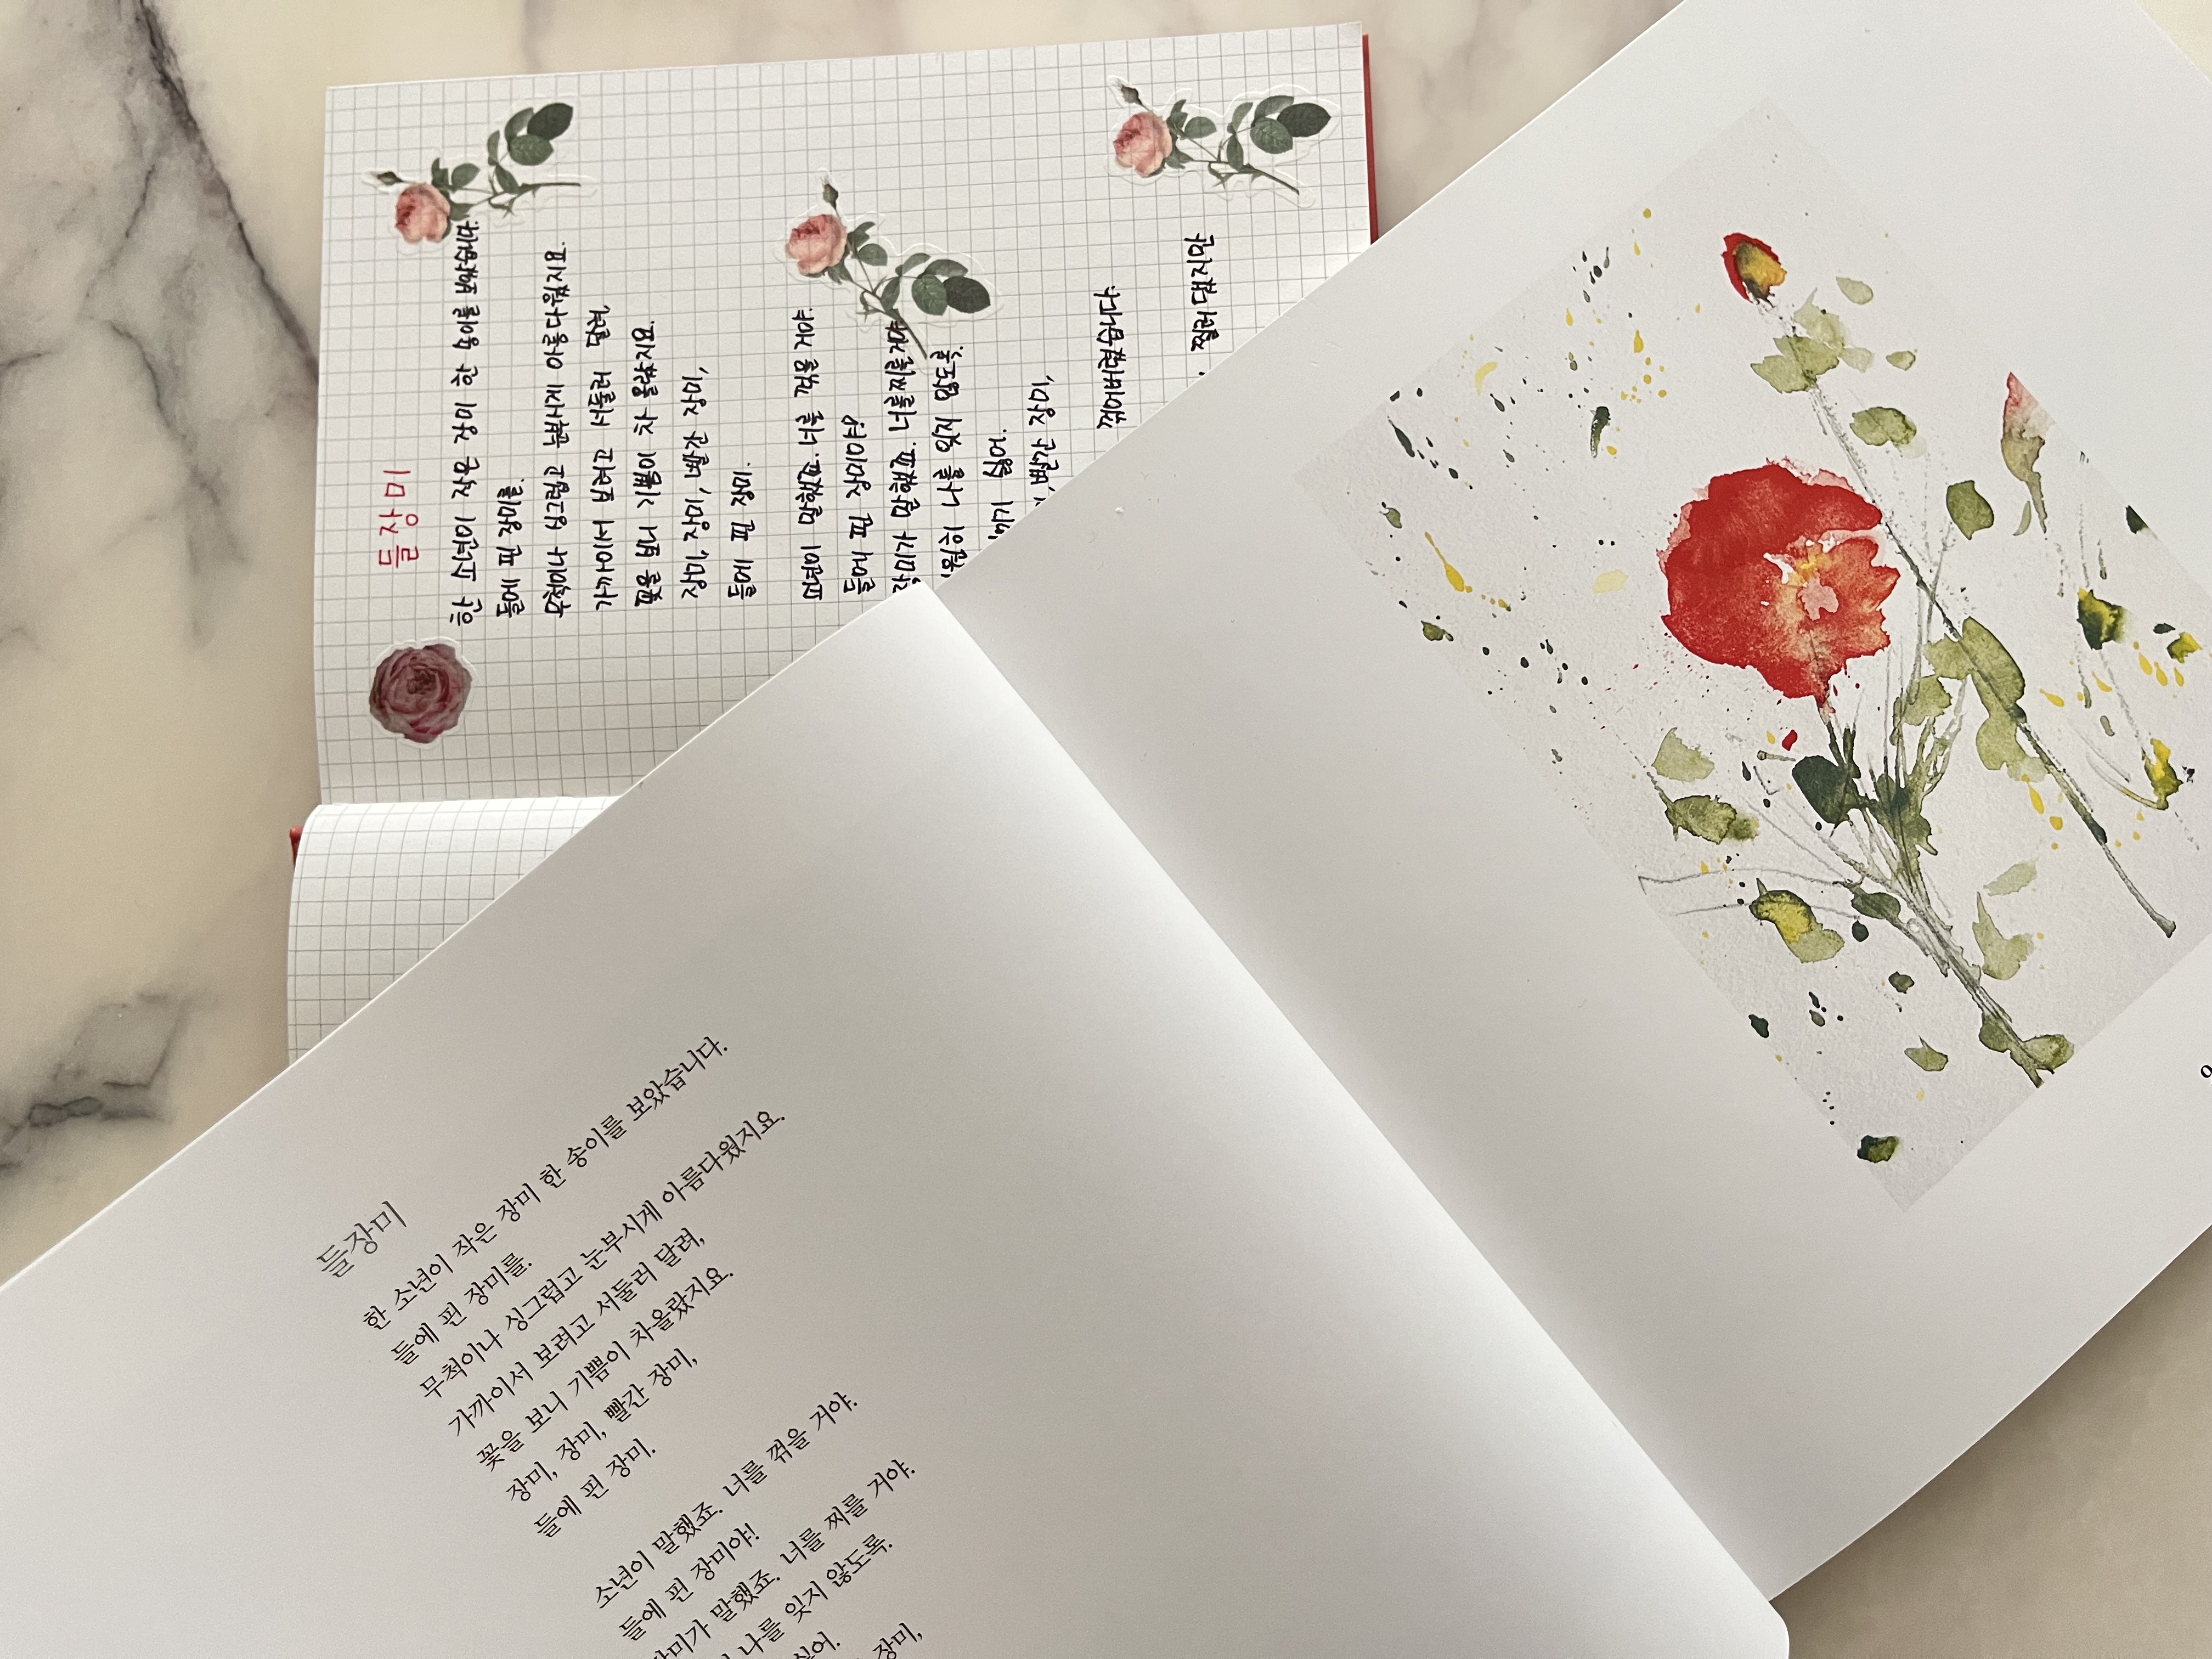 들장미
한 소년이 작은 장미 한 송이를 보았습니다.
들에 핀 장미를.
무척이나 싱그럽고 눈부시게 아름다웠지요.
가까이서 보려고 서둘러 달려,
꽃을 보니 기쁨이 차올랐지요.
장미, 장미, 빨간 장미,
들에 핀 장미.
소년이 말했죠. 너를 꺾을 거야.
들에 핀 장미야!
장미가 말했죠. 너를 찌를 거야.
나를 잊지 않도록.
싫어.
장미,
들장미
한 소년이 작은 장미 한 송이를 보았습니다.
들에 핀 장미를.
무척이나 싱그럽고 눈부시게 아름다웠지요.
가까이서 보려고 서둘러 달려,
꽃을 보니 기쁨이 차올랐지요.
장미, 장미, 빨간 장미,
들에 핀 장미.
소년이 말했죠. 너를 꺾을 거야.
들에 핀 장미야!
장미가 말했죠. 너를 찌를 거야.
나를 잊지 않도록.
싫어.
빨간 장미,